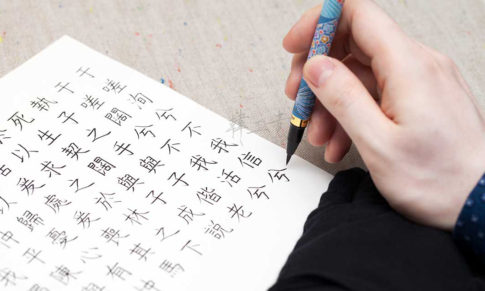 于嗟洵兮不我信兮
于嗟闊兮不我活兮
執子之手與子偕老
死生契闊與子成說
以求之于林之下
爰處爰喪其馬
歸憂心有
平陳